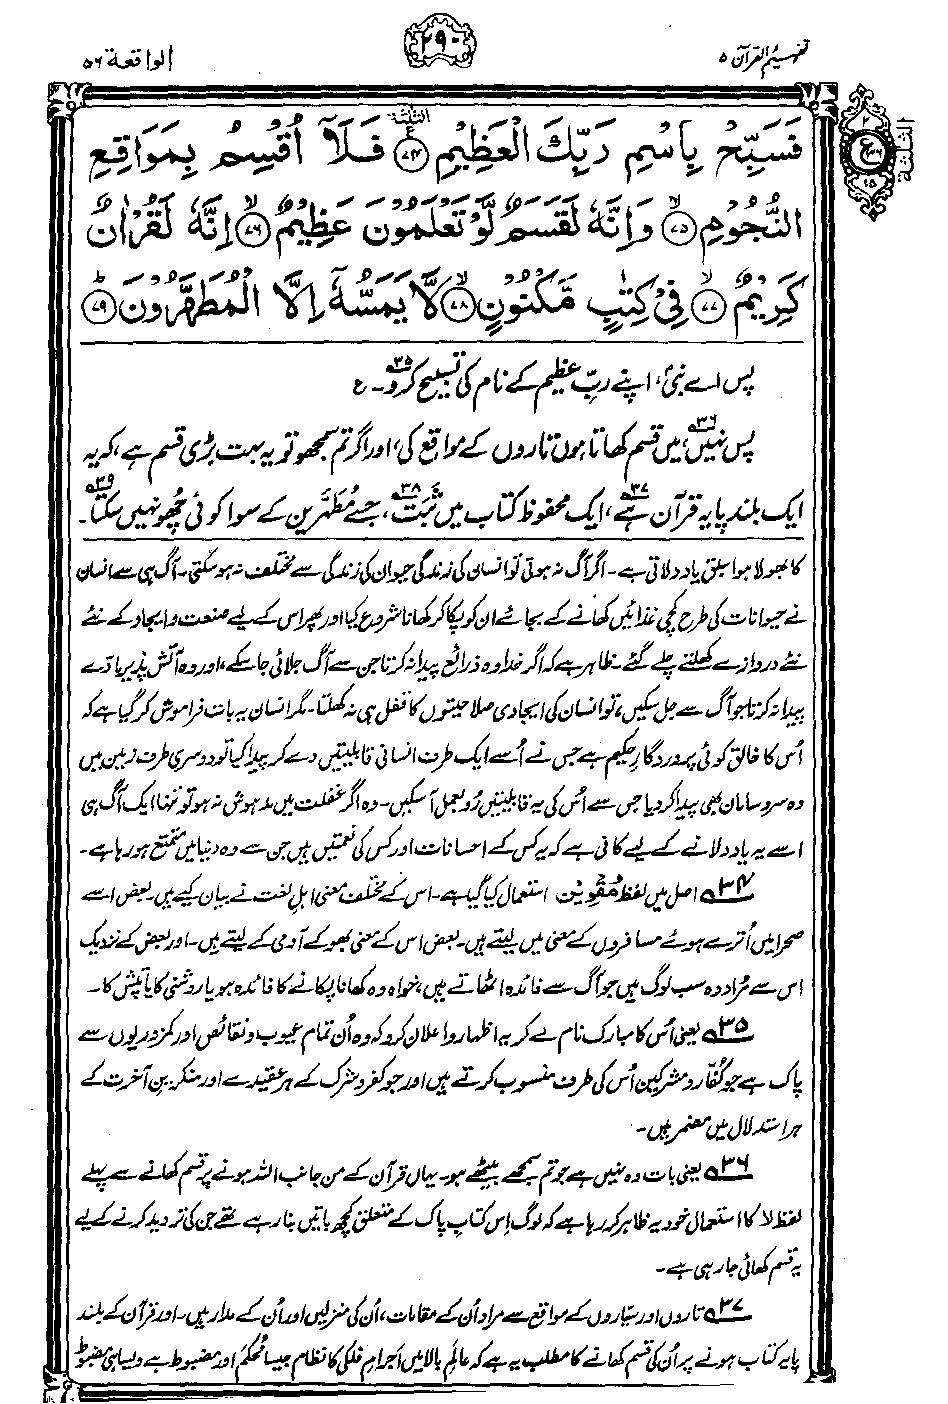 تفہیم القرآن ۵
۲۹۰
الواقعۃ ۵۶
الثلثۃ
فَسَبِّحْ بِاسْمِ رَبِّكَ الْعَظِيْمِ ﴿۷۴﴾ ع فَلَاۤ اُقْسِمُ بِمَوٰقِعِ
النُّجُوْمِ ﴿۷۵﴾ وَاِنَّهٗ لَقَسَمٌ لَّوْ تَعْلَمُوْنَ عَظِيْمٌ ﴿۷۶﴾ اِنَّهٗ لَقُرْاٰنٌ
كَرِيْمٌ ﴿۷۷﴾ فِيْ كِتٰبٍ مَّكْنُوْنٍ ﴿۷۸﴾ لَّا يَمَسُّهٗۤ اِلَّا الْمُطَهَّرُوْنَ ﴿۷۹﴾
۲
ع
۱۵
الثلثۃ
پس اے نبیؐ، اپنے ربِّ عظیم کے نام کی تسبیح کرو۳۵۔ ع
پس نہیں۳۶، میں قسم کھاتا ہوں تاروں کے مواقع کی، اور اگر تم سمجھو تو یہ بہت بڑی قسم ہے، کہ یہ
ایک بلند پایہ قرآن ہے۳۷، ایک محفوظ کتاب میں ثبت۳۸، جسے مُطَہَّرین کے سوا کوئی چھو نہیں سکتا۳۹۔
کا بھولا ہوا سبق یاد دلاتی ہے۔ اگر آگ نہ ہوتی تو انسان کی زندگی حیوان کی زندگی سے مختلف نہ ہو سکتی۔ آگ ہی سے انسان
نے حیوانات کی طرح کچی غذائیں کھانے کے بجائے ان کو پکا کر کھانا شروع کیا اور پھر اس کے لیے صنعت و ایجاد کے نئے
نئے دروازے کھلتے چلے گئے۔ ظاہر ہے کہ اگر خدا وہ ذرائع پیدا نہ کرتا جن سے آگ جلائی جا سکے، اور وہ آتش پذیر مادّے
پیدا نہ کرتا جو آگ سے جل سکیں، تو انسان کی ایجادی صلاحیتوں کا قفل ہی نہ کھلتا۔ مگر انسان یہ بات فراموش کر گیا ہے کہ
اُس کا خالق کوئی پروردگارِ حکیم ہے جس نے اُسے ایک طرف انسانی قابلیتیں دے کر پیدا کیا تو دوسری طرف زمین میں
وہ سروسامان بھی پیدا کر دیا جس سے اُس کی یہ قابلیتیں رُو بعمل آ سکیں۔ وہ اگر غفلت میں مدہوش نہ ہو تو تنہا ایک آگ ہی
اسے یہ یاد دلانے کے لیے کافی ہے کہ یہ کس کے احسانات اور کس کی نعمتیں ہیں جن سے وہ دنیا میں متمتع ہو رہا ہے۔
۳۴ اصل میں لفظ مُقْوِیْن استعمال کیا گیا ہے۔ اس کے مختلف معنی اہلِ لغت نے بیان کیے ہیں۔ بعض اسے
صحرا میں اُترے ہوئے مسافروں کے معنی میں لیتے ہیں۔ بعض اس کے معنی بھوکے آدمی کے لیتے ہیں۔ اور بعض کے نزدیک
اس سے مُراد وہ سب لوگ ہیں جو آگ سے فائدہ اٹھاتے ہیں، خواہ وہ کھانا پکانے کا فائدہ ہو یا روشنی کا یا تپش کا۔
۳۵ یعنی اُس کا مبارک نام لے کر یہ اظہار و اعلان کرو کہ وہ اُن تمام عیوب و نقائص اور کمزوریوں سے
پاک ہے جو کُفّار و مشرکین اُس کی طرف منسوب کرتے ہیں اور جو کفر و شرک کے ہر عقیدے اور منکرینِ آخرت کے
ہر استدلال میں مضمر ہیں۔
۳۶ یعنی بات وہ نہیں ہے جو تم سمجھے بیٹھے ہو۔ یہاں قرآن کے من جانب اللہ ہونے پر قسم کھانے سے پہلے
لفظ لا کا استعمال خود یہ ظاہر کر رہا ہے کہ لوگ اِس کتابِ پاک کے متعلق کچھ باتیں بنا رہے تھے جن کی تردید کرنے کے لیے
یہ قسم کھائی جا رہی ہے۔
۳۷ تاروں اور سیّاروں کے مواقع سے مراد اُن کے مقامات، اُن کی منزلیں اور اُن کے مدار ہیں۔ اور قرآن کے بلند
پایہ کتاب ہونے پر اُن کی قسم کھانے کا مطلب یہ ہے کہ عالمِ بالا میں اَجرامِ فلکی کا نظام جیسا مُحکم اور مضبوط ہے ویسا ہی مضبوط